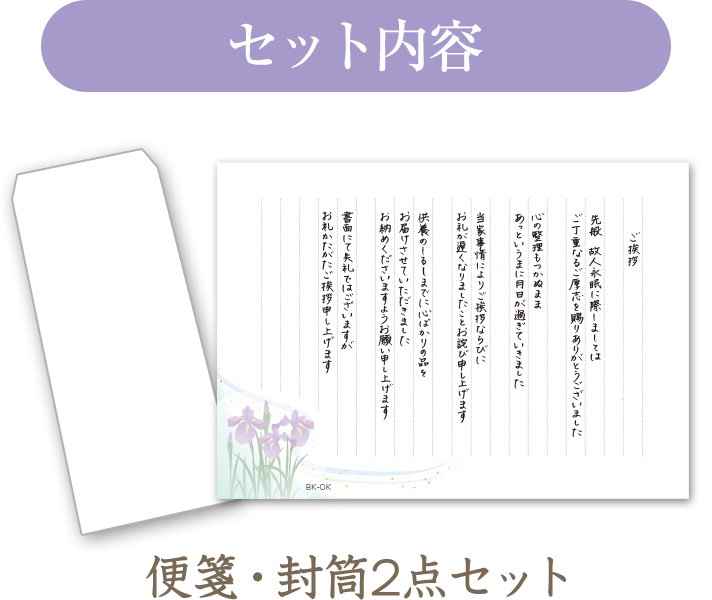 セット内容
ご挨拶
先般 故人永眠に際しましては
ご丁重なるご厚志を賜りありがとうございました
心の整理もつかぬまま
あっというまに月日が過ぎていきました
当家事情によりご挨拶ならびに
お礼が遅くなりましたことお詫び申し上げます
供養のしるしまでに心ばかりの品を
お届けさせていただきました
お納めくださいますようお願い申し上げます
書面にて失礼ではございますが
お礼かたがたご挨拶申し上げます
BK-OK
便箋・封筒2点セット